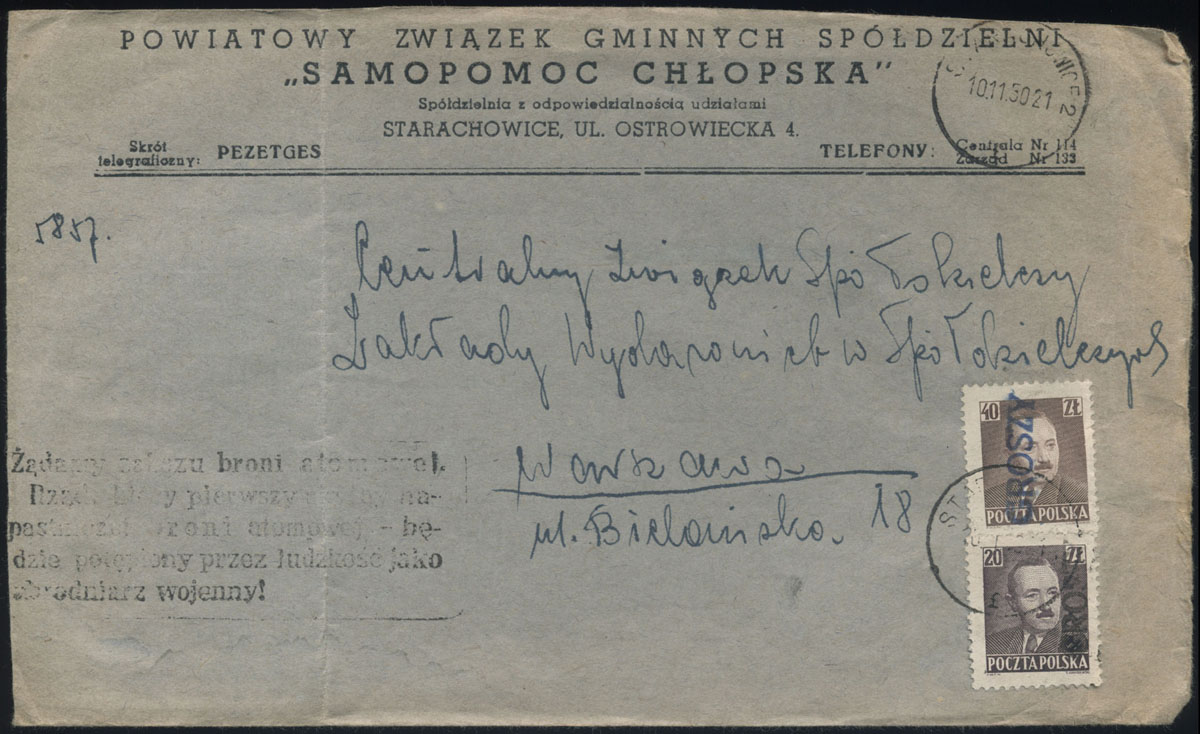 POWIATOWY ZWIĄZEK GMINNYCH SPÓŁDZIELNI
„SAMOPOMOC CHŁOPSKA"
Spółdzielnia z odpowiedzialnością udziałami
STARACHOWICE, UL. OSTROWIECKA 4.
Skrót
telegraficzny: PEZETGES
TELEFONY:
Centrala Nr 114
Zarząd Nr 133
10.11.50 21
5857.
Centralny Związek Spółdzielczy
Zakłady Wydawnictw Spółdzielczych
Warszawa
ul. Bielańska 18
Żądamy zakazu broni atomowej.
Rząd, który pierwszy użyje na-
pastniczej broni atomowej - bę-
dzie potępiony przez ludzkość jako
zbrodniarz wojenny!
40 ZŁ
GROSZY
POCZTA POLSKA
20 ZŁ
POCZTA POLSKA